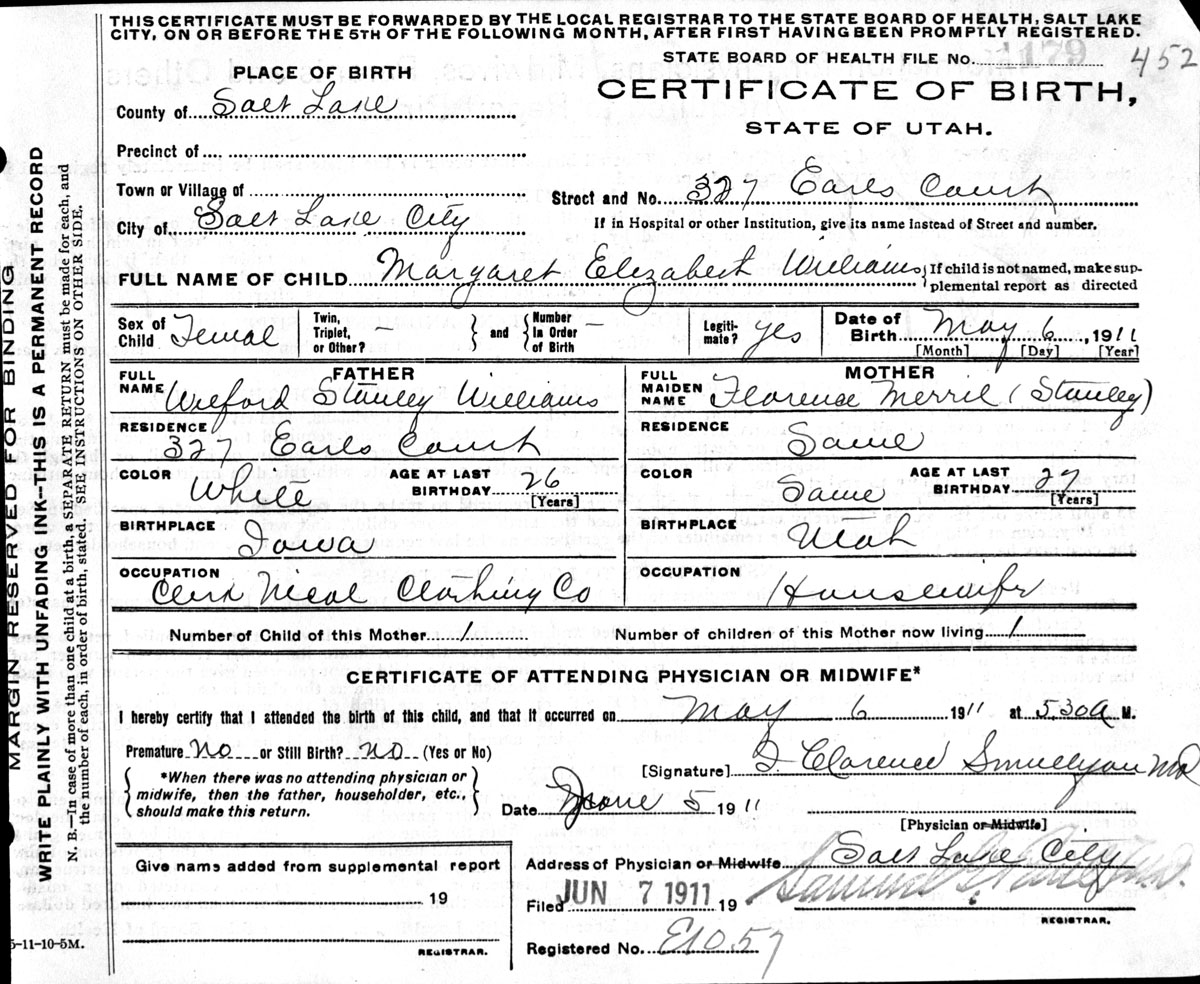 THIS CERTIFICATE MUST BE FORWARDED BY THE LOCAL REGISTRAR TO THE STATE BOARD OF HEALTH, SALT LAKE
CITY, ON OR BEFORE THE 5TH OF THE FOLLOWING MONTH, AFTER FIRST HAVING BEEN PROMPTLY REGISTERED.
STATE BOARD OF HEALTH FILE No. 1179 452
PLACE OF BIRTH
CERTIFICATE OF BIRTH,
County of Salt Lake
STATE OF UTAH.
Precinct of
Town or Village of
Street and No. 327 Earls Court
City of Salt Lake City
If in Hospital or other Institution, give its name instead of Street and number.
FULL NAME OF CHILD Margaret Elizabeth Williams {If child is not named, make sup-
plemental report as directed
Sex of Child Femal
Twin, Triplet, or Other? – } and { Number in Order of Birth –
Legiti-mate? yes
Date of Birth May 6, 1911
[Month] [Day] [Year]
FATHER
FULL NAME Wilford Stanley Williams
MOTHER
FULL MAIDEN NAME Florence Merril (Stanley)
RESIDENCE 327 Earls Court
RESIDENCE Same
COLOR White AGE AT LAST BIRTHDAY 26 [Years]
COLOR Same AGE AT LAST BIRTHDAY 27 [Years]
BIRTHPLACE Iowa
BIRTHPLACE Utah
OCCUPATION Clerk Nicol Clothing Co
OCCUPATION Housewife
Number of Child of this Mother 1
Number of children of this Mother now living 1
CERTIFICATE OF ATTENDING PHYSICIAN OR MIDWIFE*
I hereby certify that I attended the birth of this child, and that it occurred on May 6 1911 at 5.30 a M.
Premature? no or Still Birth? no (Yes or No)
{*When there was no attending physician or
midwife, then the father, householder, etc.,
should make this return.}
[Signature] Clarence MD
Date June 5 1911
[Physician or Midwife]
Give name added from supplemental report
19
REGISTRAR.
Address of Physician or Midwife Salt Lake City
Filed JUN 7 1911 19
REGISTRAR.
Registered No. E1057
5-11-10-5M.
MARGIN RESERVED FOR BINDING
WRITE PLAINLY WITH UNFADING INK—THIS IS A PERMANENT RECORD
N. B.—In case of more than one child at a birth, a SEPARATE RETURN must be made for each, and
the number of each, in order of birth, stated. SEE INSTRUCTIONS ON OTHER SIDE.